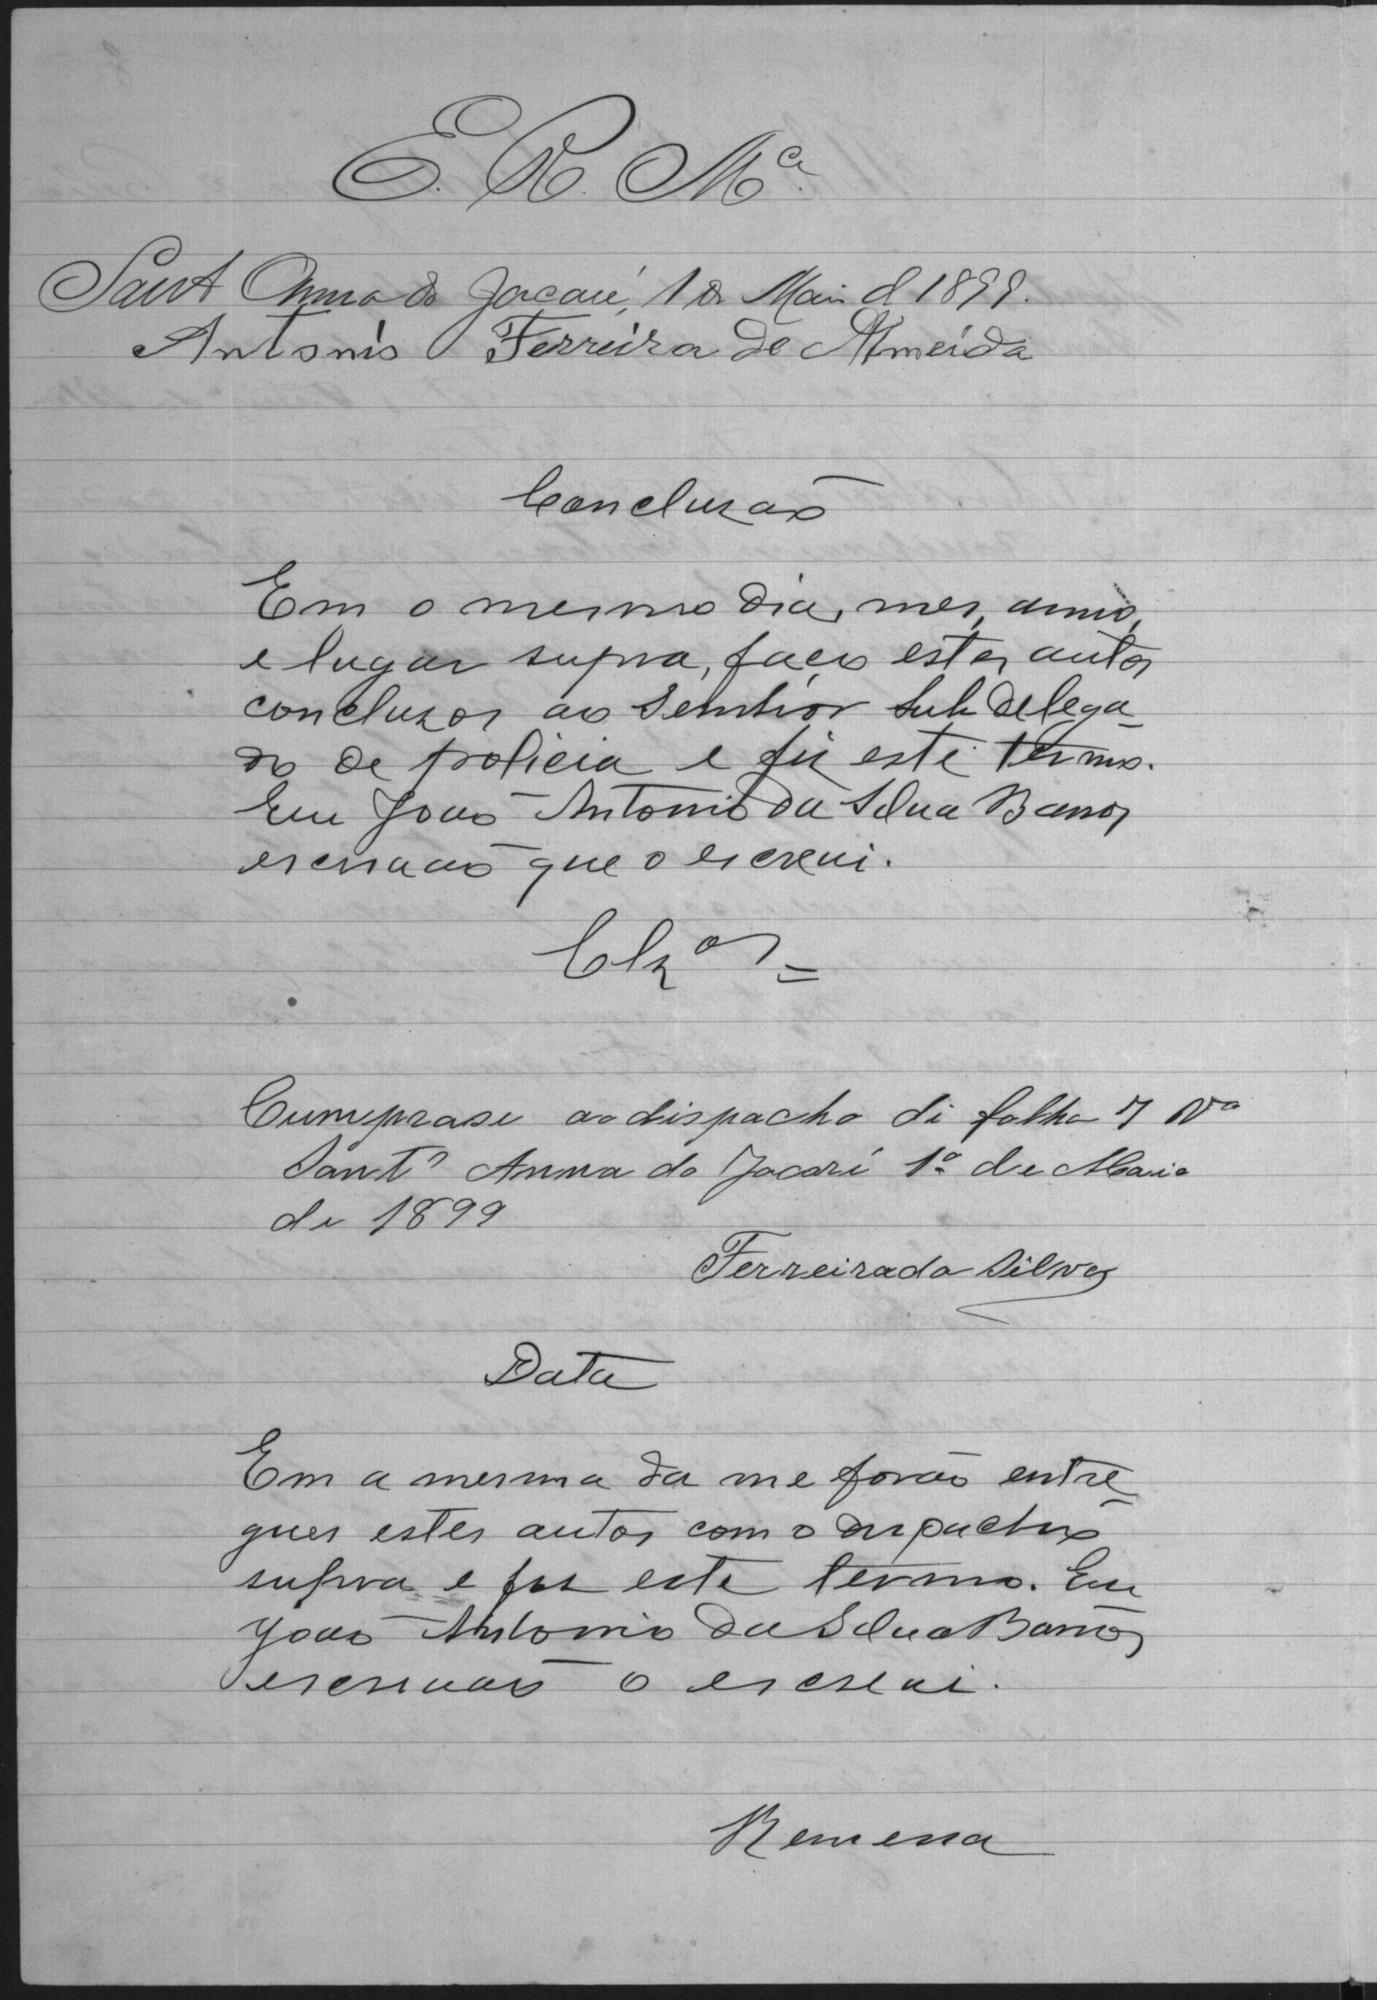 E. R. Mce.
Sant Anna do Jacaré, 1 de Maio d 1899.
Antonio Ferreira de Almeida
Concluzão
Em o mesmo dia, mes, anno,
e lugar supra, faço estes autos
concluzos ao Senhor Subdelega-
do de policia e fiz este termo.
Eu João Antonio da Silva Barros
escrivão que o escrevi.
Clzos =
Cumprase ao dispacho di folha 7 Va
Sant' Anna do Jacaré 1º de Maio
de 1899
Ferreira da Silva
Data
Em a mesma da me forão entre-
gues estes autos com o despacho
supra e fiz este termo. Eu
João Antonio da Silva Barros
escrivão o escrevi.
Remessa